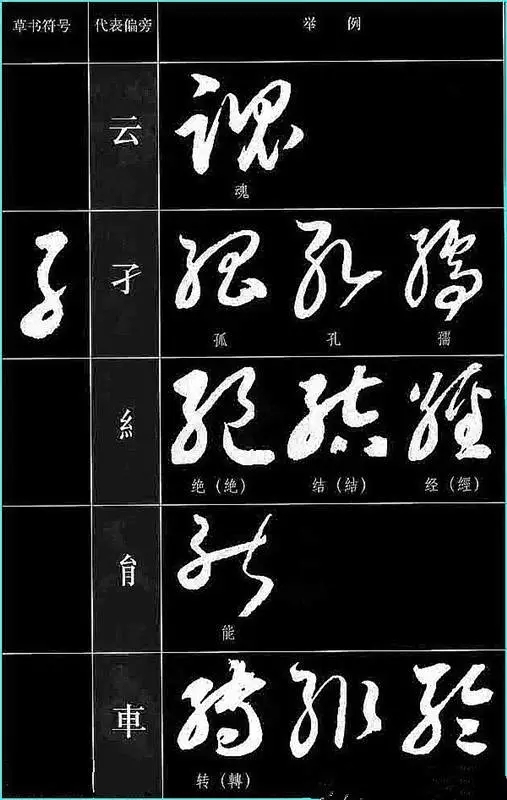 草书符号 代表偏旁 举例
云
魂
孑
孤 孔 孺
糹
绝（絶） 结（結） 经（經）
㠯
能
車
转（轉）